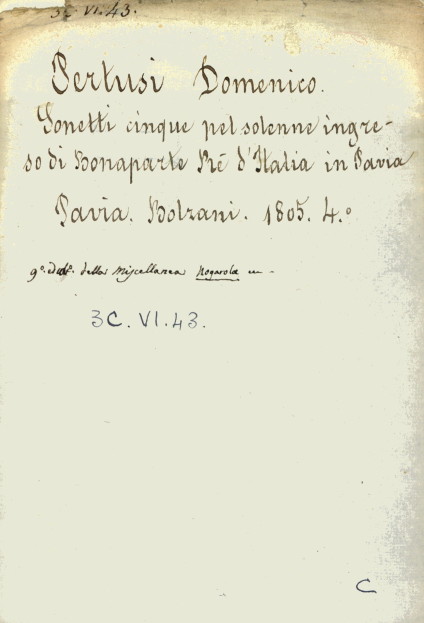 3C.VI.43.
Pertusi Domenico.
Sonetti cinque pel solenne ingre-
so di Bonaparte Ré d'Italia in Pavia
Pavia. Bolzani. 1805. 4.º
della Miscellanea
3C.VI.43.
C